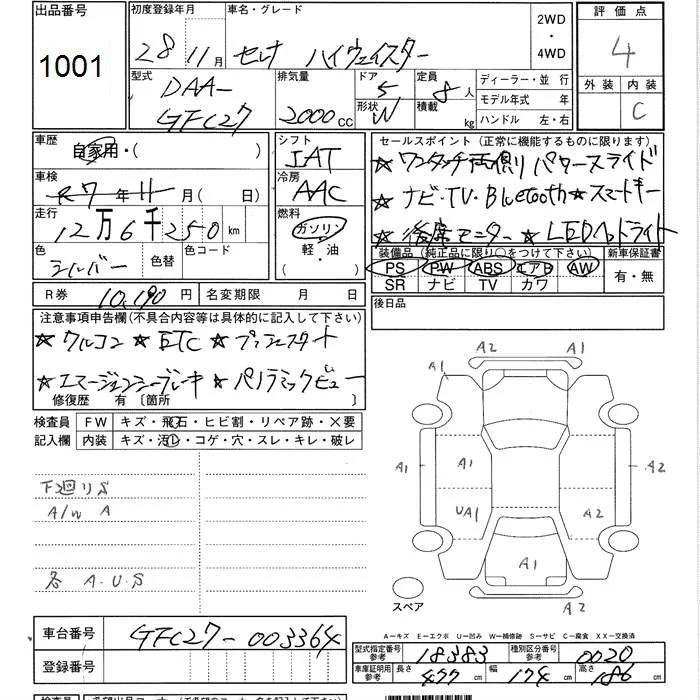 出品番号
1001
初度登録年月
28 11月
車名・グレード
セレナ ハイウェイスター
2WD
・
4WD
評価点
4
外装 内装
C
型式
DAA-
GFC27
排気量
2000cc
ドア
5
形状
W
定員
8人
積載 kg
ディーラー・並行
モデル年式 年
ハンドル 左・右
車歴
自家用・( )
シフト
IAT
車検
R7年11月( 日)
冷房
AAC
走行
12万6千250km
燃料
ガソリン・
軽・油
色
シルバー
色替
色コード
R券 10,190円
名変期限 月 日
セールスポイント(正常に機能するものに限ります)
★ワンタッチ両側パワースライド
★ナビ・TV・Bluetooth★スマートキー
★後席モニター★LEDヘッドライト
装備品(純正品に限り○をつけて下さい)
PS PW ABS エアB AW
SR ナビ TV カワ
新車保証書
有・無
後日品
注意事項申告欄(不具合内容等は具体的に記入して下さい)
★クルコン★ETC★プッシュスタート
★エマージェンシーブレーキ★パノラミックビュー
修復歴 有〔箇所 〕
検査員
記入欄
FW キズ・飛石・ヒビ割・リペア跡・×要
内装 キズ・汚レ・コゲ・穴・スレ・キレ・破レ
下廻りS
A/W A
各 A.U.S
A2 A1
A1
A1 A1 A2
UA1 A2
A1
A2
スペア
A-キズ E-エクボ U-凹み W-補修跡 S-サビ C-腐食 XX-交換済
車台番号
GFC27-003364
登録番号
型式指定番号
参考
18383
種別区分番号
参考
0020
車庫証明用
参考
長さ 477cm
幅 174cm
高さ 186cm